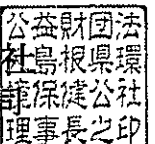 公益財団法
社島根県環
保健公社
理事長之印